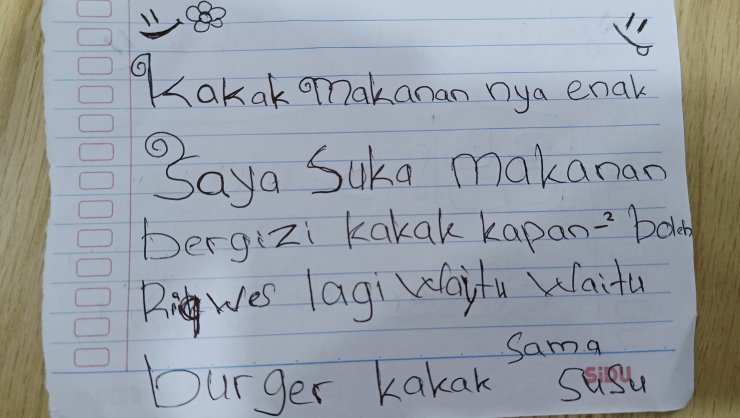 Kakak makanan nya enak
Saya suka makanan
bergizi kakak kapan-² boleh
Riqwes lagi waitu waitu
burger kakak sama susu
SiDU